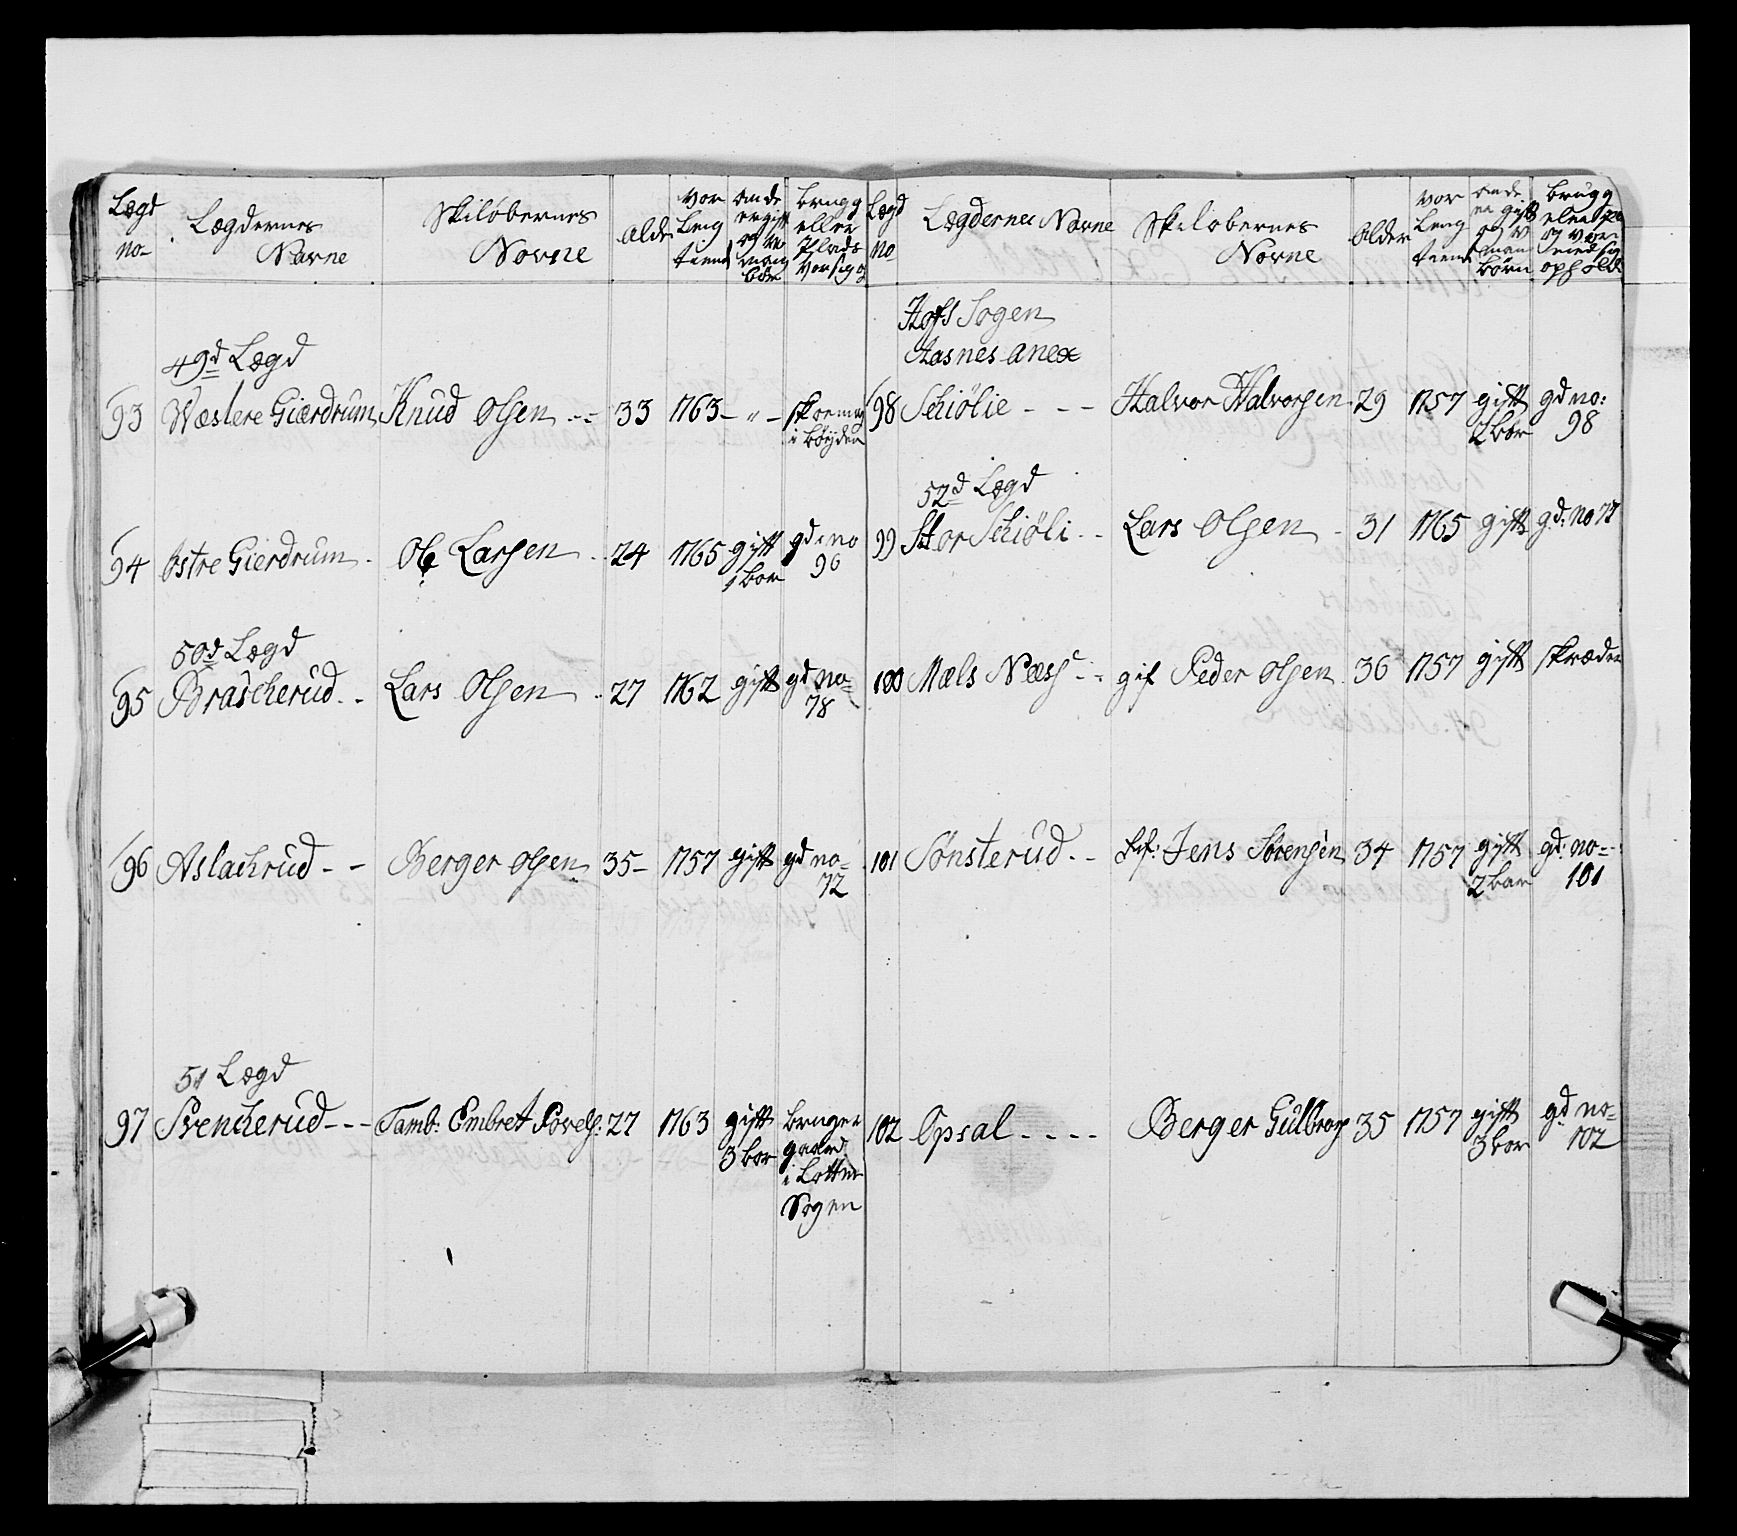 Lægd no- Lægdernes Navne Skilöbernes Navne alder vor leng tient om de er gift og vor mang bör brugg eller Plads
49d Lægd
93 Wæstere Gierdrum Knud Olsen -- 33 1763 - " - skoemag i böyden
94 Østre Gierdrum - Ole Larsen - 24 1765 gift 1 bor gd: no 96
50d Lægd
95 Brascherud - - Lars Olsen - 27 1762 gift gd no- 78
96 Aslachrud - - Berger Olsen 35 - 1757 gift gd no- 72
51 Lægd
97 Svencherud - - - Tamb: Embret Povels: 27 1763 gift 3 bor bruger gaard i Sogen
Lægd no Lægdernes Navne Skilobernes Navne alder vor leng tient om de er gift og vor mang börn brugg
Hofs Sogen
Aasnes anex
98 Schiölie - - - Halvor Halvorsen 29 1757 gift 2 bor gd no: 98
52d Lægd
99 Stor Schiöli - - Lars Olsen - 31 1765 gift gd: no 77
100 Mæls Næss - - gif Peder Olsen 36 1757 gift skræder
101 Sönsterud - - Jens Sörensen 34 1757 gift 2 bar gd: no- 101
102 Opsal - - - - Berger Gulbrans 35 1757 gift 3 bor gd no- 102